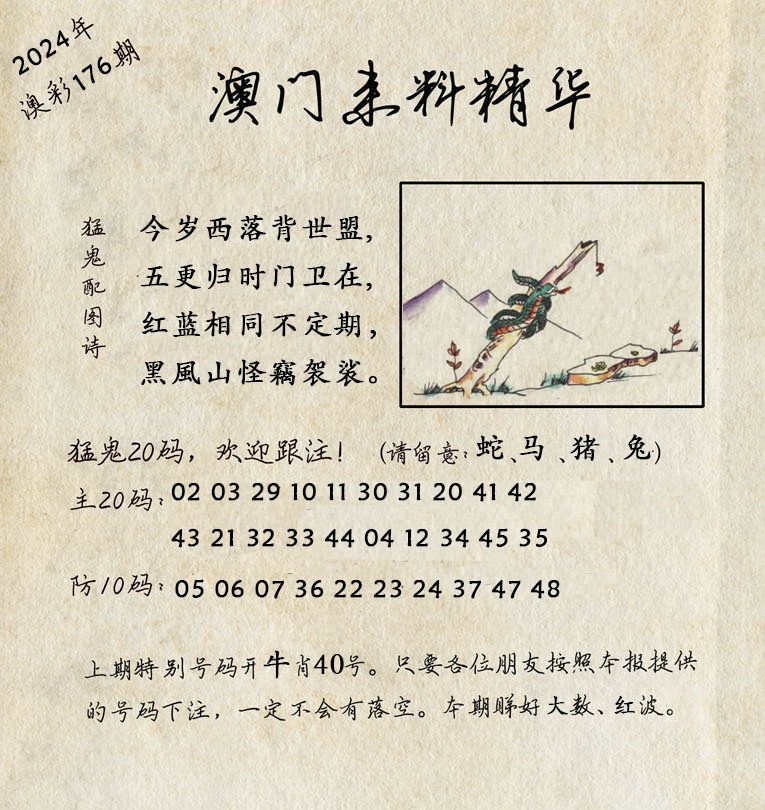 2024年
澳彩176期
澳门来料精华
猛鬼配图诗
今岁西落背世盟，
五更归时门卫在，
红蓝相同不定期，
黑風山怪竊袈裟。
猛鬼20码，欢迎跟注！（请留意：蛇、马、猪、兔）
主20码：02 03 29 10 11 30 31 20 41 42
43 21 32 33 44 04 12 34 45 35
防10码：05 06 07 36 22 23 24 37 47 48
上期特别号码开牛肖40号。只要各位朋友按照本报提供
的号码下注，一定不会有落空。本期睇好大数、红波。